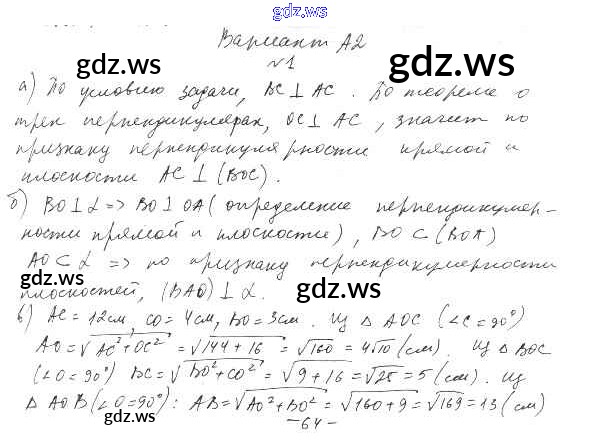 gdz.ws
Вариант А2
gdz.ws
gdz.ws
№1
а) По условию задачи, BC ⊥ AC. По теореме о
трех перпендикулярах, OC ⊥ AC, значит по
признаку перпендикулярности прямой и
плоскости AC ⊥ (BOC).
б) BO ⊥ α => BO ⊥ OA (определение перпендикуляр-
ности прямой и плоскости), BO ⊂ (BOA)
AO ⊂ α => по признаку перпендикулярности
gdz.ws
gdz.ws
gdz.ws
плоскостей, (BAO) ⊥ α.
в) AC = 12см, CO = 4см, BO = 3см. Из △ AOC (∠C = 90°)
AO = √AC² + OC² = √144 + 16 = √160 = 4√10 (см). Из △ BOC
(∠O = 90°) BC = √BO² + CO² = √9 + 16 = √25 = 5 (см). Из
△ AOB (∠O = 90°): AB = √AO² + BO² = √160 + 9 = √169 = 13 (см)
gdz.ws
gdz.ws
- 64 -